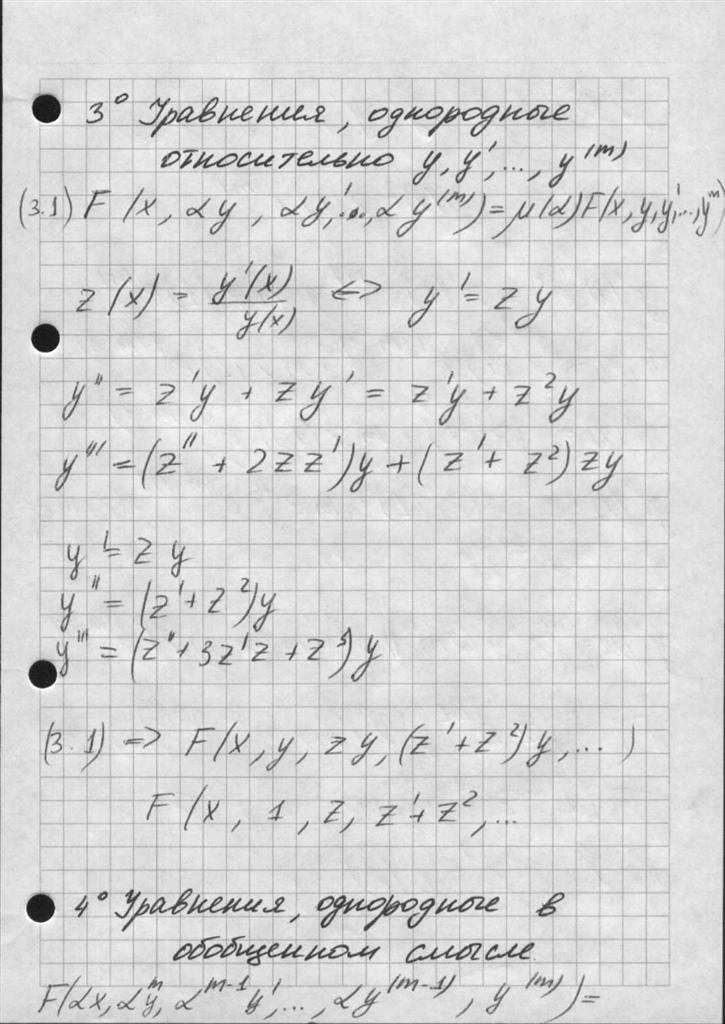 3° Уравнения, однородные
относительно y, y', ..., y^(m)
(3.1) F(x, αy, αy', ..., αy^(m)) = μ(α)F(x, y, y', ..., y^m)
z(x) = y'(x)/y(x) <=> y' = zy
y'' = z'y + zy' = z'y + z²y
y''' = (z'' + 2zz')y + (z' + z²)zy
y' = zy
y'' = (z' + z²)y
y''' = (z'' + 3z'z + z³)y
(3.1) => F(x, y, zy, (z' + z²)y, ... )
F(x, 1, z, z' + z², ...
4° Уравнения, однородные в
обобщенном смысле
F(αx, α^m y, α^(m-1) y', ..., αy^(m-1), y^(m)) =